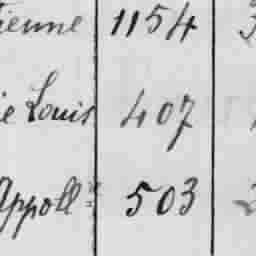 ienne 1154 3
ie Louis 407
Appoll 503 2